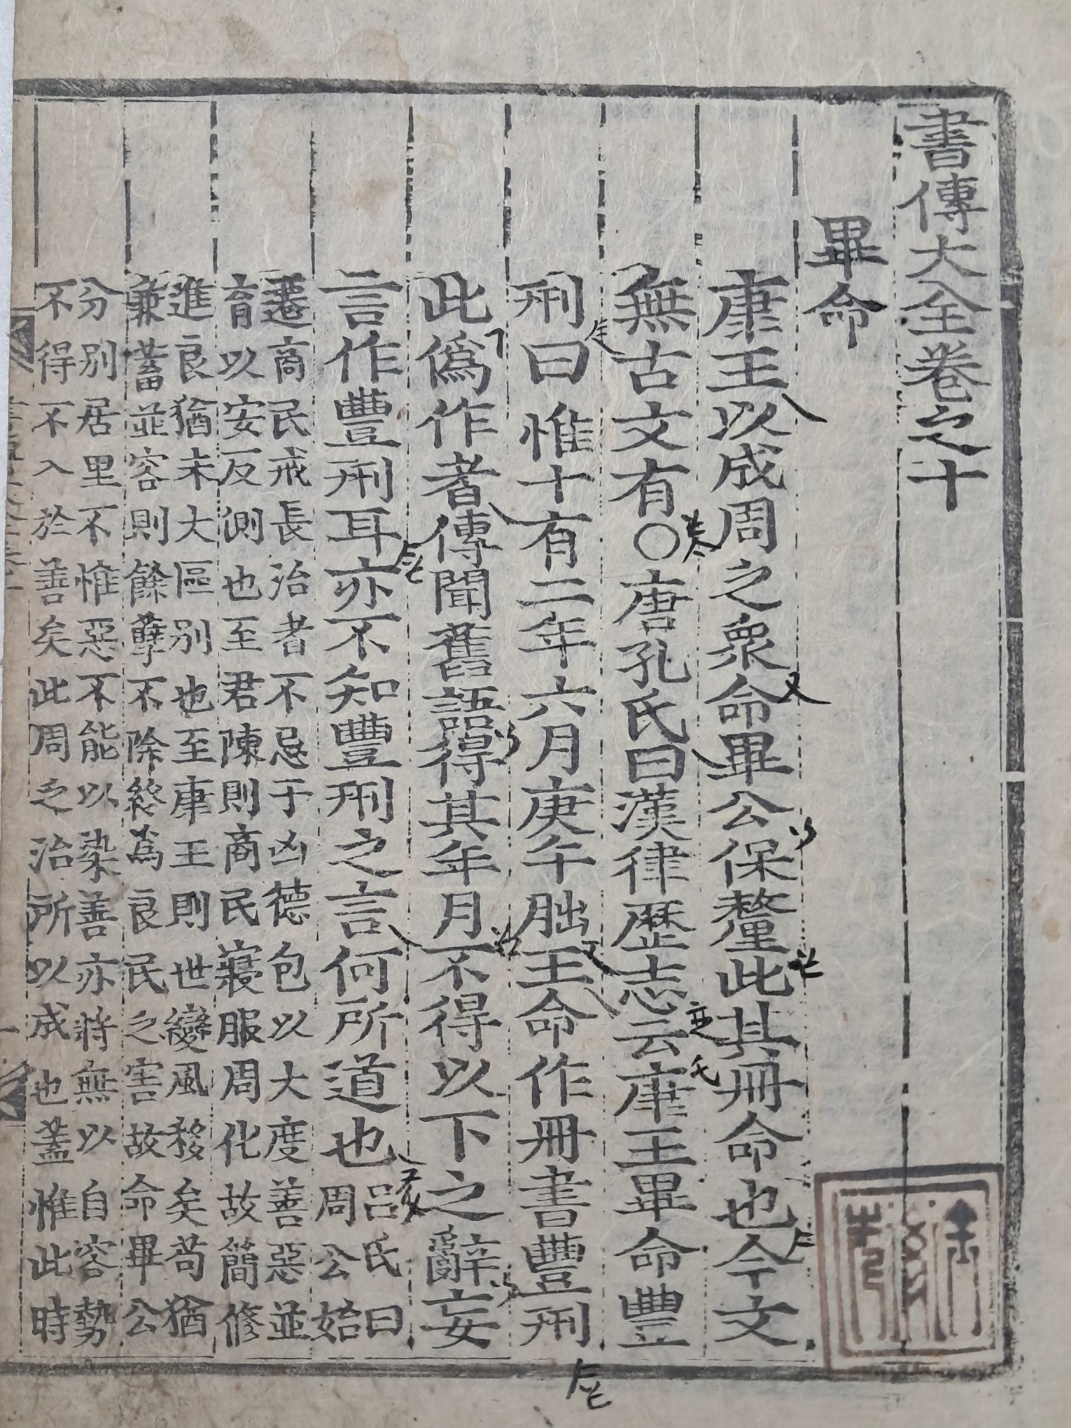 書傳大全卷之十
畢命
康王以成周之衆命畢公保釐此其冊命也今文
無古文有○唐孔氏曰漢律歷志云康王畢命豐
刑曰惟十有二年六月庚午朏王命作冊書豐刑
此僞作者傳聞舊語得其年月不得以下之辭妄
言作豐刑耳亦不知豐刑之言何所道也
呂氏曰
周公始
遷商民戒長治者不忌于凶德包以大度善惡並
育以安反側也至君陳則商民寢服周化故簡修
進良猶未大區別也至康王則世變風移矣苟猶
兼蓄並容則餘孽不除終爲良民之害故命畢公
分別居里不惟惡不能以染善亦將無以自容勢
不得不入於善矣此周之治所以成也蓋惟此時